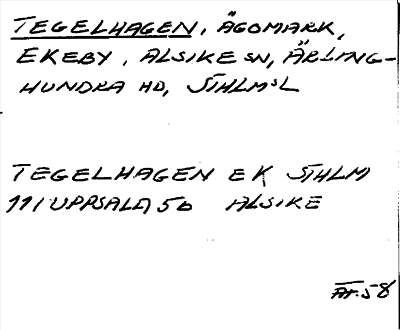 TEGELHAGEN, ÄGOMARK,
EKEBY, ALSIKE SN, ÄRLING-
HUNDRA HD, STHLMS L
TEGELHAGEN EK STHLM
111 UPPSALA 50 ALSIKE
ÄT. 58